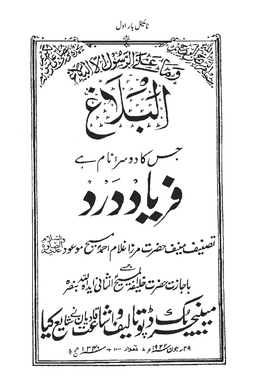 ٹائیٹل بار اول
وما على الرسول الا البلاغ
البلاغ
جس کا دوسرا نام ہے
فریاد درد
تصنیف منیف حضرت مرزا غلام احمد مسیح موعود
باجازت حضرت خلیفۃ المسیح الثانی ایدہ اللہ بنصرہ
مینیجر بک ڈپو تالیف و اشاعت قادیان نے شایع کیا